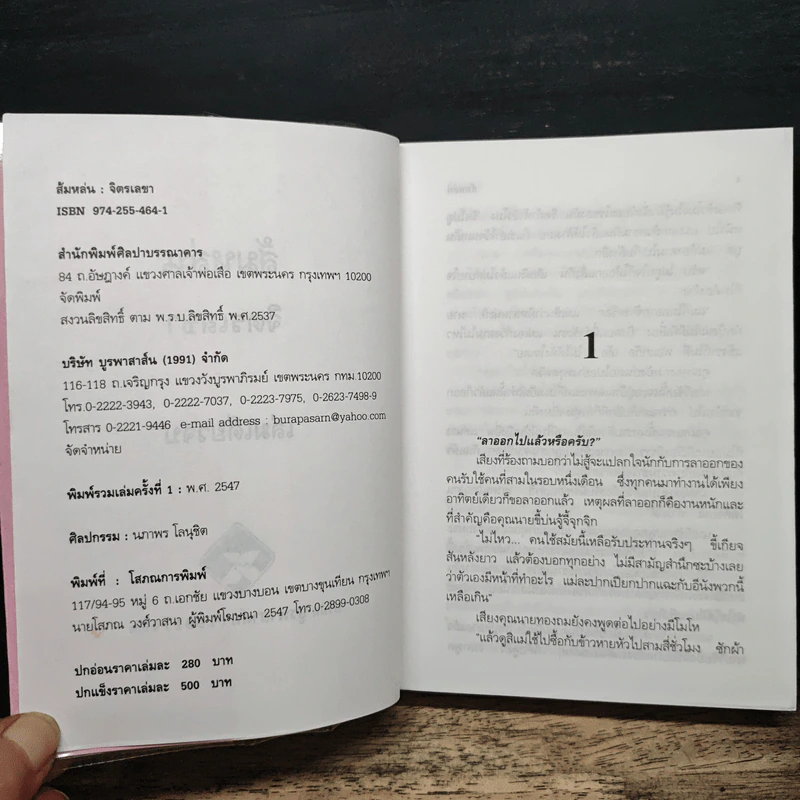 ส้มหล่น : จิตรเลขา
ISBN 974-255-464-1
สำนักพิมพ์ศิลปาบรรณาคาร
84 ถ.อัษฎางค์ แขวงศาลเจ้าพ่อเสือ เขตพระนคร กรุงเทพฯ 10200
จัดพิมพ์
สงวนลิขสิทธิ์ ตาม พ.ร.บ.ลิขสิทธิ์ พ.ศ.2537
บริษัท บูรพาสาส์น (1991) จำกัด
116-118 ถ.เจริญกรุง แขวงวังบูรพาภิรมย์ เขตพระนคร กทม.10200
โทร.0-2222-3943, 0-2222-7037, 0-2223-7975, 0-2623-7498-9
โทรสาร 0-2221-9446 e-mail address : burapasarn@yahoo.com
จัดจำหน่าย
พิมพ์รวมเล่มครั้งที่ 1 : พ.ศ. 2547
ศิลปกรรม : นภาพร โลนุชิต
พิมพ์ที่ : โสภณการพิมพ์
117/94-95 หมู่ 6 ถ.เอกชัย แขวงบางบอน เขตบางขุนเทียน กรุงเทพฯ
นายโสภณ วงศ์วาสนา ผู้พิมพ์โฆษณา 2547 โทร.0-2899-0308
ปกอ่อนราคาเล่มละ 280 บาท
ปกแข็งราคาเล่มละ 500 บาท
1
"ลาออกไปแล้วหรือครับ?"
เสียงที่ร้องถามบอกว่าไม่สู้จะแปลกใจนักกับการลาออกของ
คนรับใช้คนที่สามในรอบหนึ่งเดือน ซึ่งทุกคนมาทำงานได้เพียง
อาทิตย์เดียวก็ขอลาออกแล้ว เหตุผลที่ลาออกก็คืองานหนักและ
ที่สำคัญคือคุณนายขี้บ่นจู้จี้จุกจิก
"ไม่ไหว... คนใช้สมัยนี้เหลือรับประทานจริงๆ ขี้เกียจ
สันหลังยาว แล้วต้องบอกทุกอย่าง ไม่มีสามัญสำนึกซะบ้างเลย
ว่าตัวเองมีหน้าที่ทำอะไร แม่ละปากเปียกปากแฉะกับอีนังพวกนี้
เหลือเกิน"
เสียงคุณนายทองถมยังคงพูดต่อไปอย่างมีโมโห
"แล้วดูสิแม่ใช้ไปซื้อกับข้าวหายหัวไปสามสี่ชั่วโมง ซักผ้า